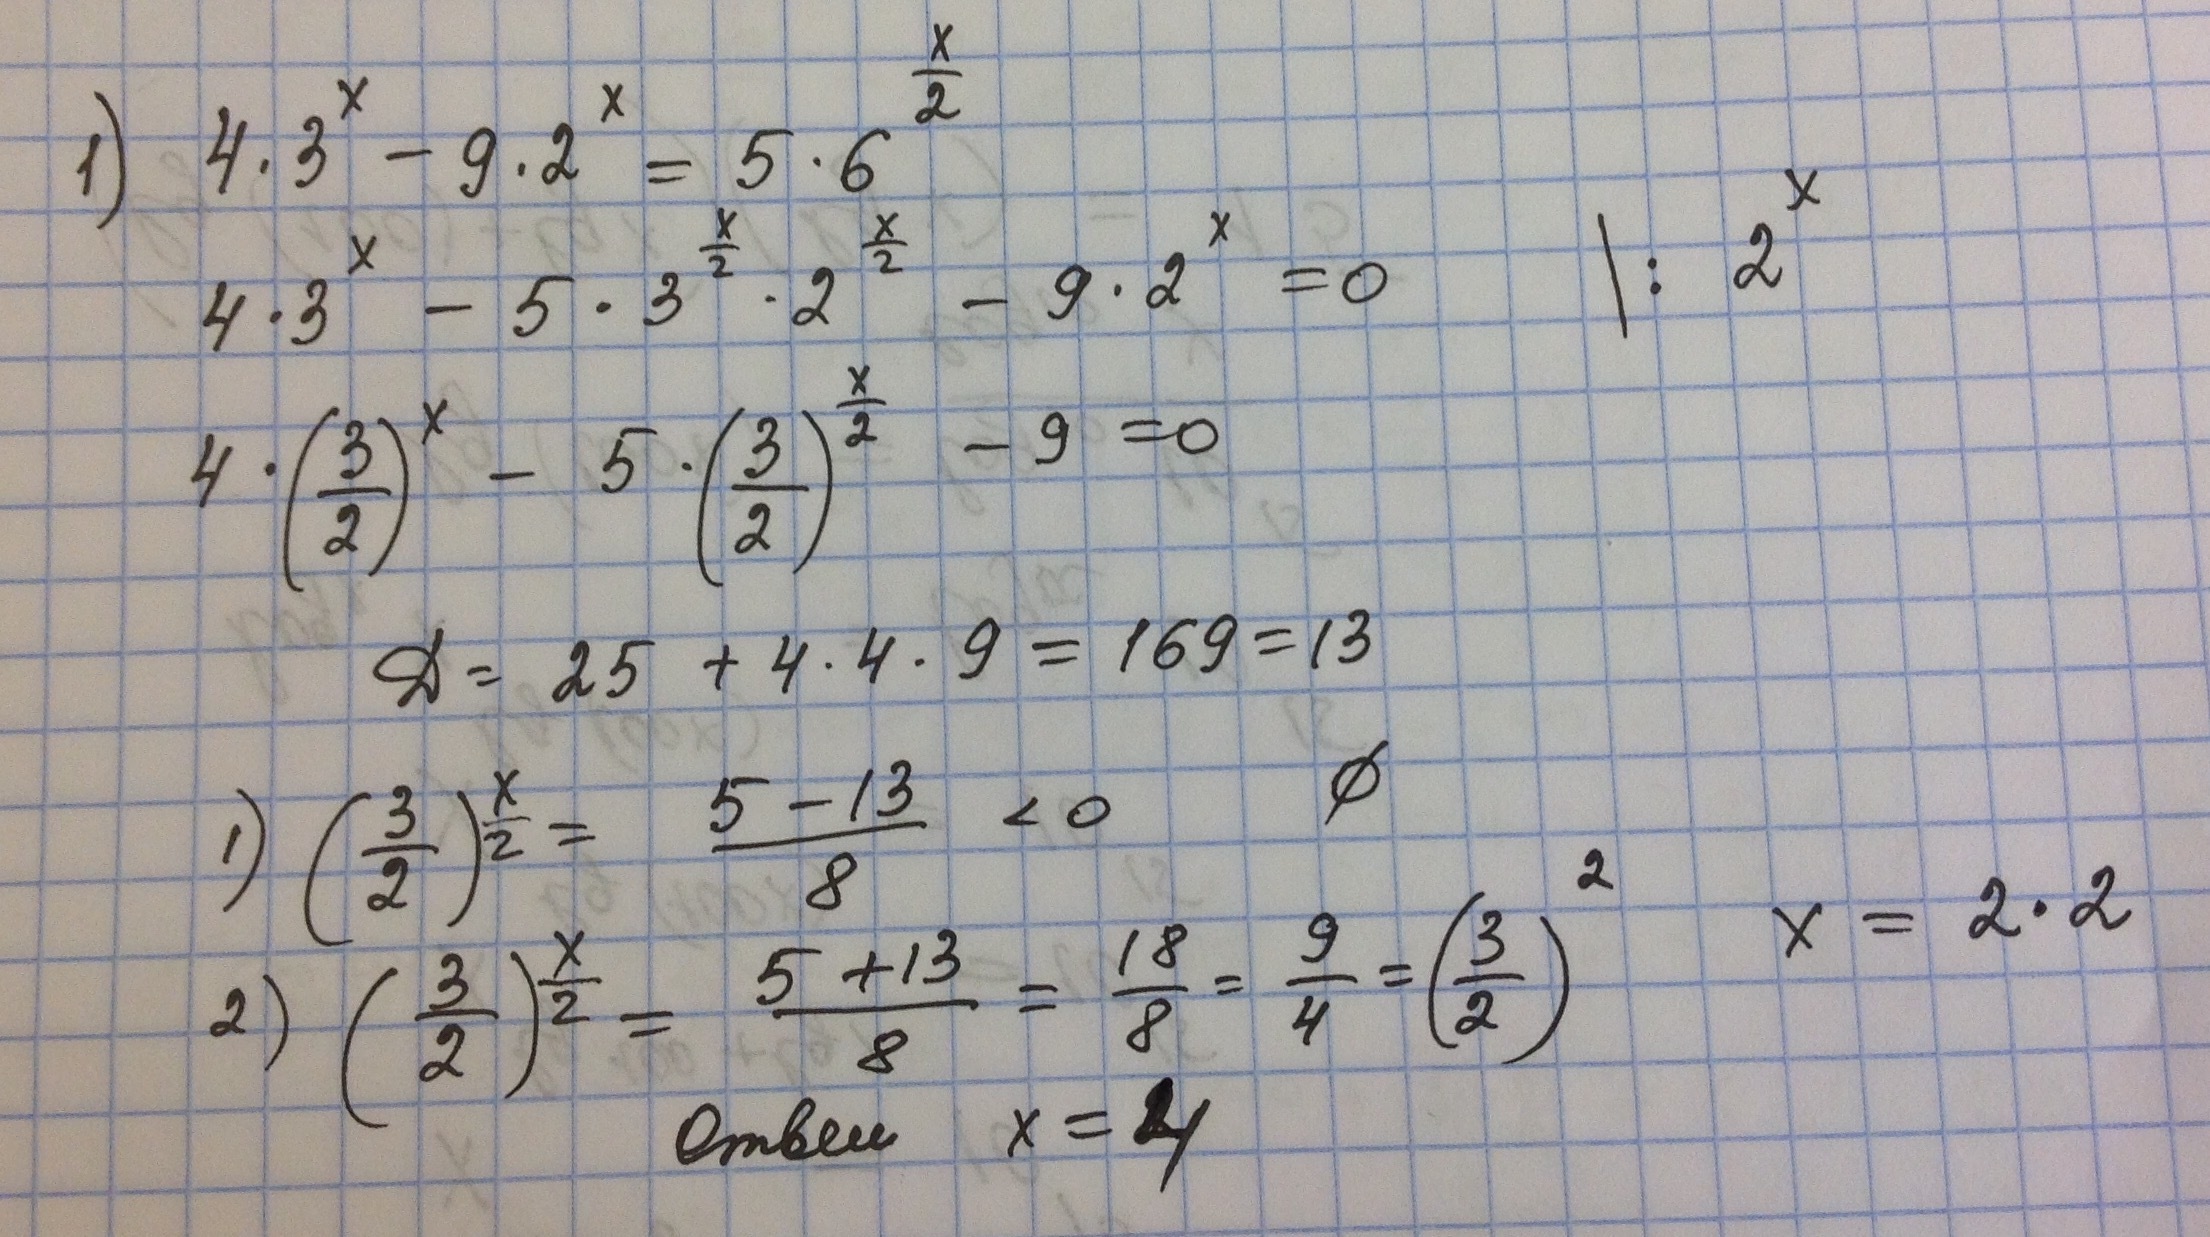 1) 4·3^x − 9·2^x = 5·6^(x/2)
4·3^x − 5·3^(x/2)·2^(x/2) − 9·2^x = 0 | : 2^x
4·(3/2)^x − 5·(3/2)^(x/2) − 9 = 0
D = 25 + 4·4·9 = 169 = 13
1) (3/2)^(x/2) = (5 − 13)/8 < 0 ∅
2) (3/2)^(x/2) = (5 + 13)/8 = 18/8 = 9/4 = (3/2)^2 x = 2·2
Ответ x = 4